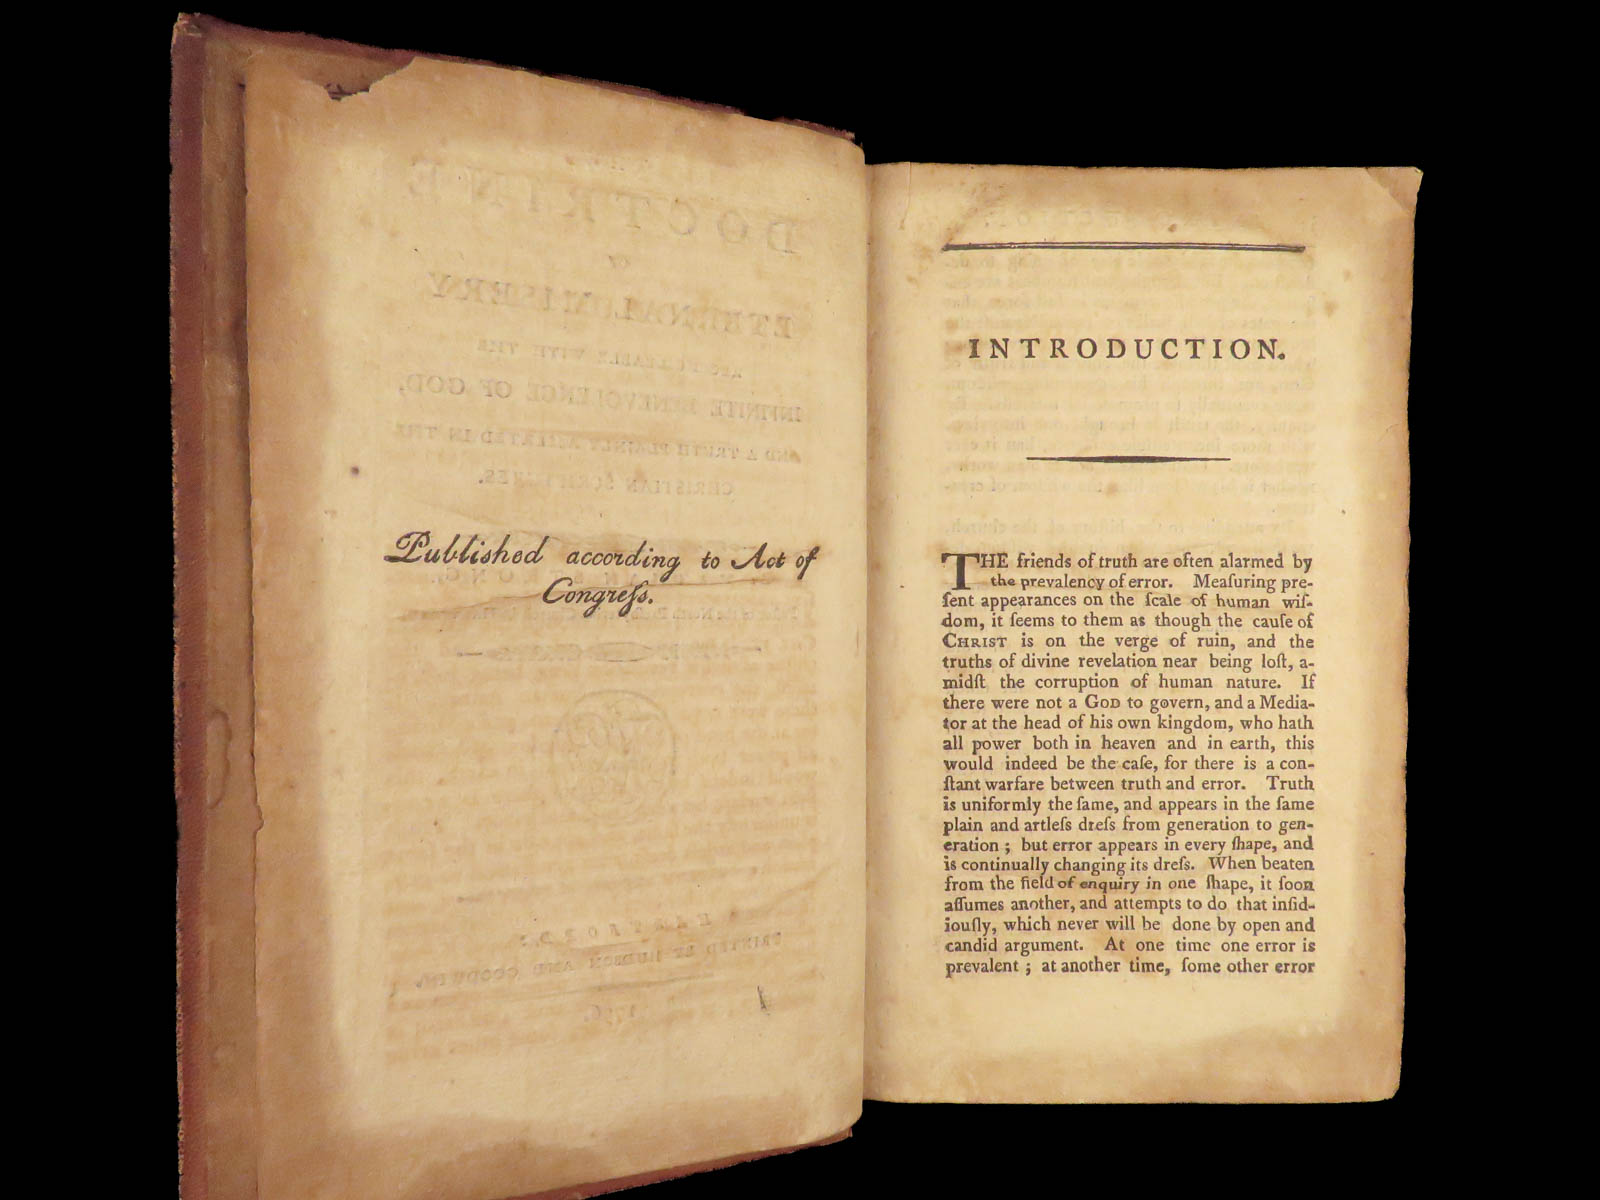 Published according to Act of
Congreſs.
INTRODUCTION.
THE friends of truth are often alarmed by
the prevalency of error. Meaſuring pre-
ſent appearances on the ſcale of human wiſ-
dom, it ſeems to them as though the cauſe of
CHRIST is on the verge of ruin, and the
truths of divine revelation near being loſt, a-
midſt the corruption of human nature. If
there were not a GOD to govern, and a Media-
tor at the head of his own kingdom, who hath
all power both in heaven and in earth, this
would indeed be the caſe, for there is a con-
ſtant warfare between truth and error. Truth
is uniformly the ſame, and appears in the ſame
plain and artleſs dreſs from generation to gen-
eration ; but error appears in every ſhape, and
is continually changing its dreſs. When beaten
from the field of enquiry in one ſhape, it ſoon
aſſumes another, and attempts to do that inſid-
iouſly, which never will be done by open and
candid argument. At one time one error is
prevalent ; at another time, ſome other error